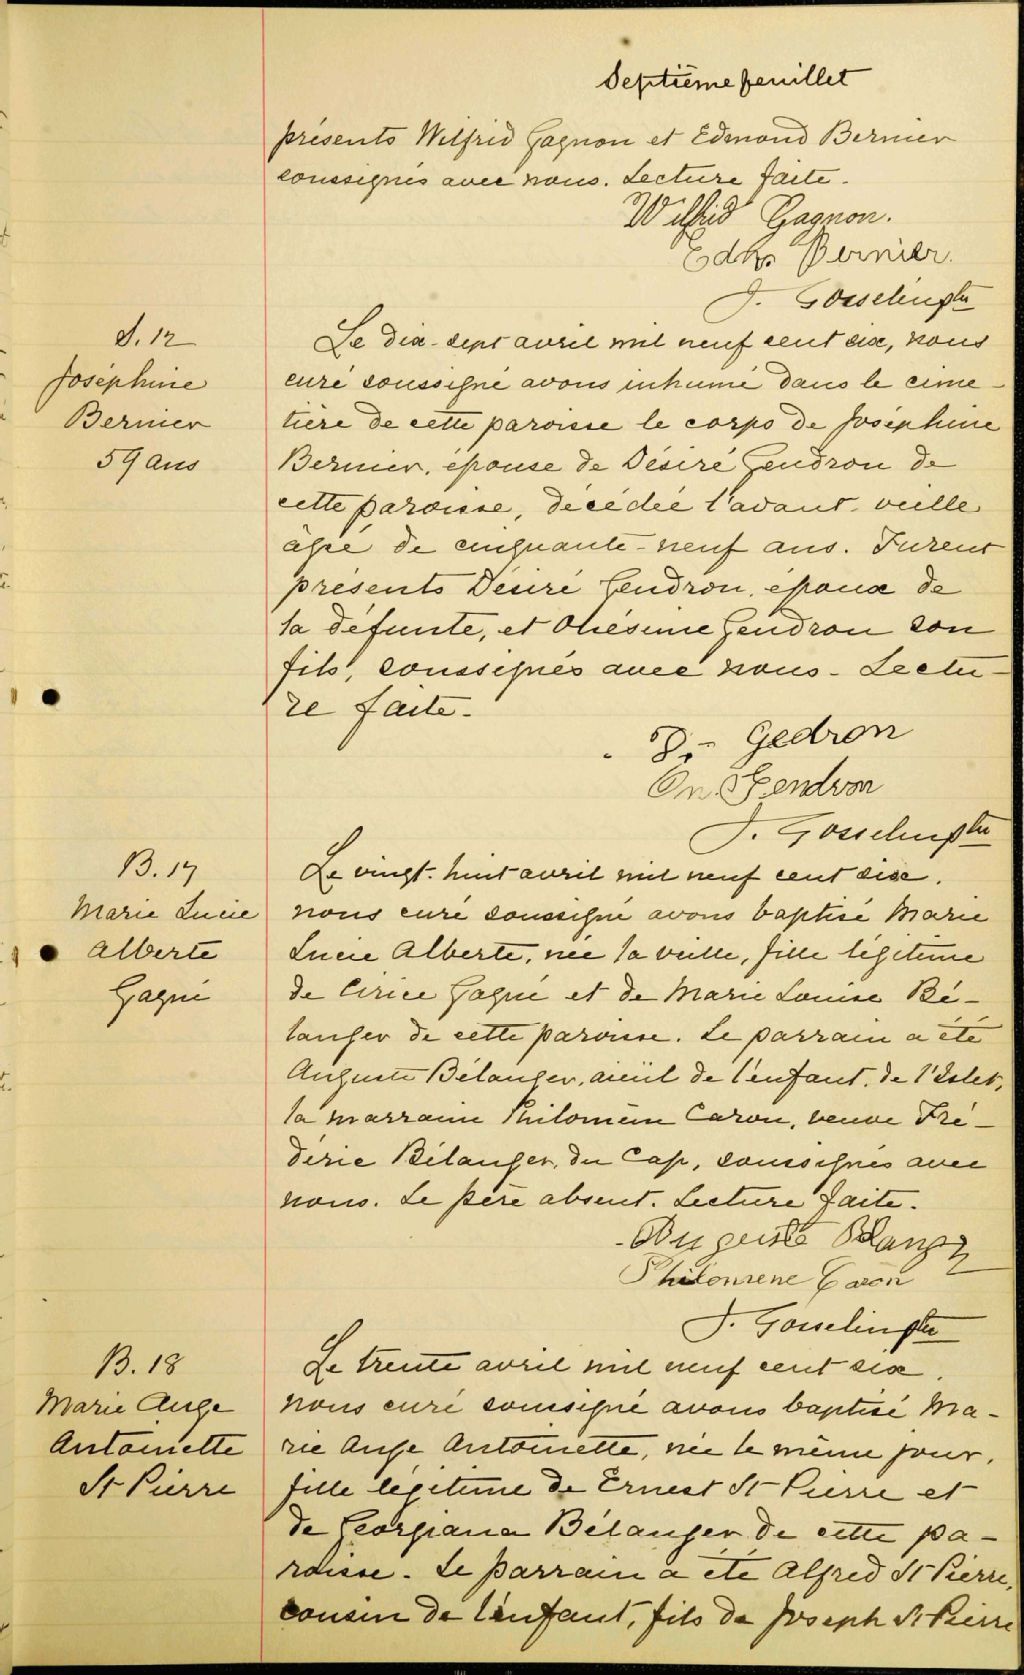 Septième feuillet
présents Wilfrid Gagnon et Edmond Bernier
soussignés avec nous. Lecture faite.
Wilfrid Gagnon.
Edm Bernier.
J. Gosselin ptr
S. 12
Joséphine
Bernier
59 ans
Le dix-sept avril mil neuf cent six, nous
curé soussigné avons inhumé dans le cime-
tière de cette paroisse le corps de Joséphine
Bernier, épouse de Désiré Gendron de
cette paroisse, décédée l'avant-veille
âgé de cinquante-neuf ans. Furent
présents Désiré Gendron, époux de
la défunte, et Onésime Gendron son
fils, soussignés avec nous. Lectu-
re faite.
D. Gedron
On. Gendron
J. Gosselin ptr
B. 17
Marie Lucie
Alberte
Gagné
Le vingt-huit avril mil neuf cent six,
nous curé soussigné avons baptisé Marie
Lucie Alberte, née la veille, fille légitime
de Cirice Gagné et de Marie Louise Bé-
langer de cette paroisse. Le parrain a été
Auguste Bélanger, aieül de l'enfant, de l'Islet,
la marraine Philomène Caron, veuve Fré-
déric Bélanger, du Cap, soussignés avec
nous. Le père absent. Lecture faite.
Auguste
Philomene Caron
J. Gosselin ptr
B. 18
Marie Ange
Antoinette
St Pierre
Le trente avril mil neuf cent six,
nous curé soussigné avons baptisé Ma-
rie Ange Antoinette, née le même jour,
fille légitime de Ernest St Pierre et
de Georgiana Bélanger de cette pa-
roisse. Le parrain a été Alfred St Pierre,
cousin de l'enfant, fils de Joseph St Pierre